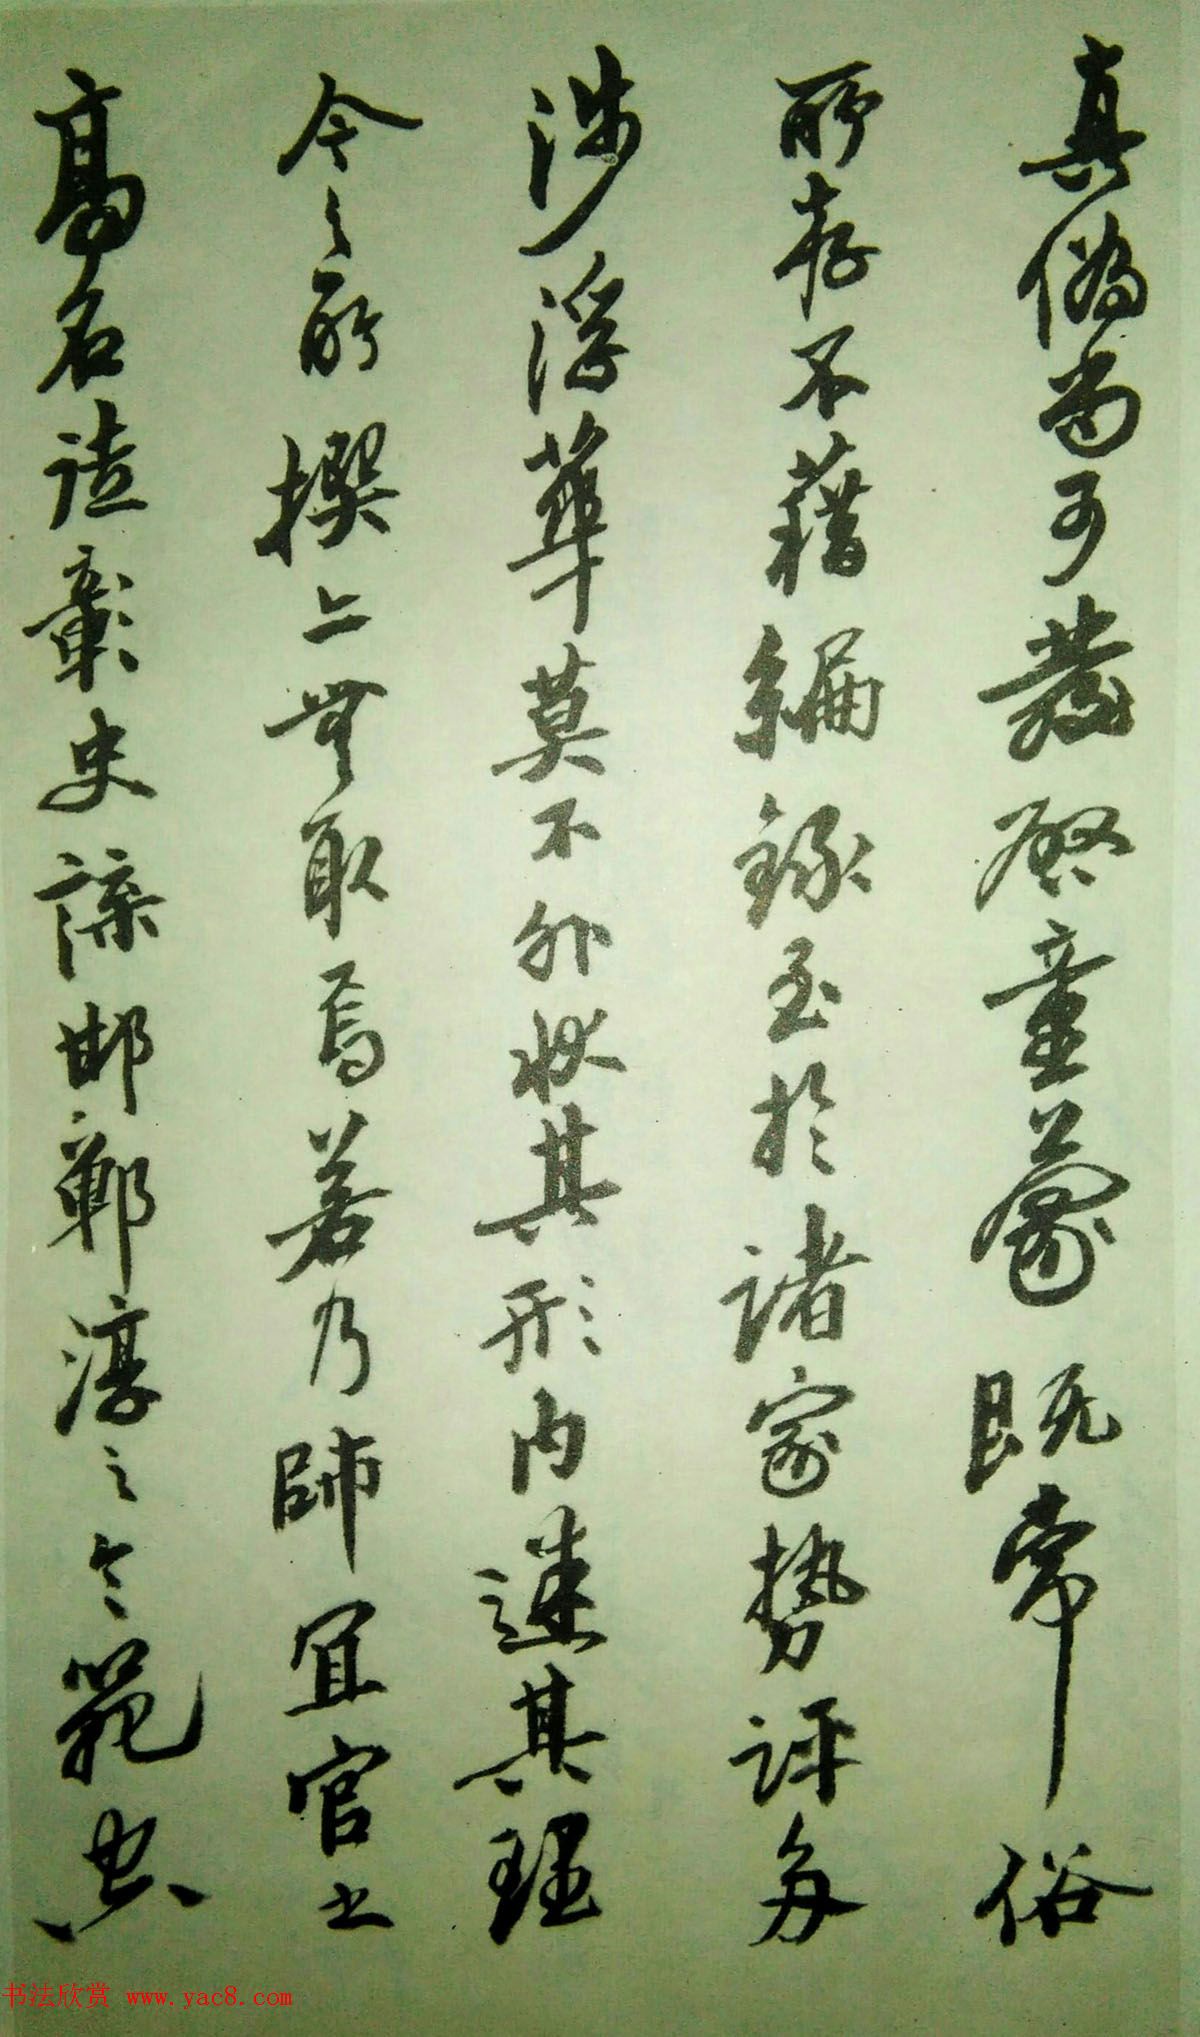 真偽尚可發啓童蒙既常俗
所存不藉編錄至於諸家勢評多
涉浮華莫不外狀其形內迷其理
今之所撰亡無取焉若乃師宜官之
高名徒彰史諜邯鄲淳之令範空
书法欣赏 www.yac8.com